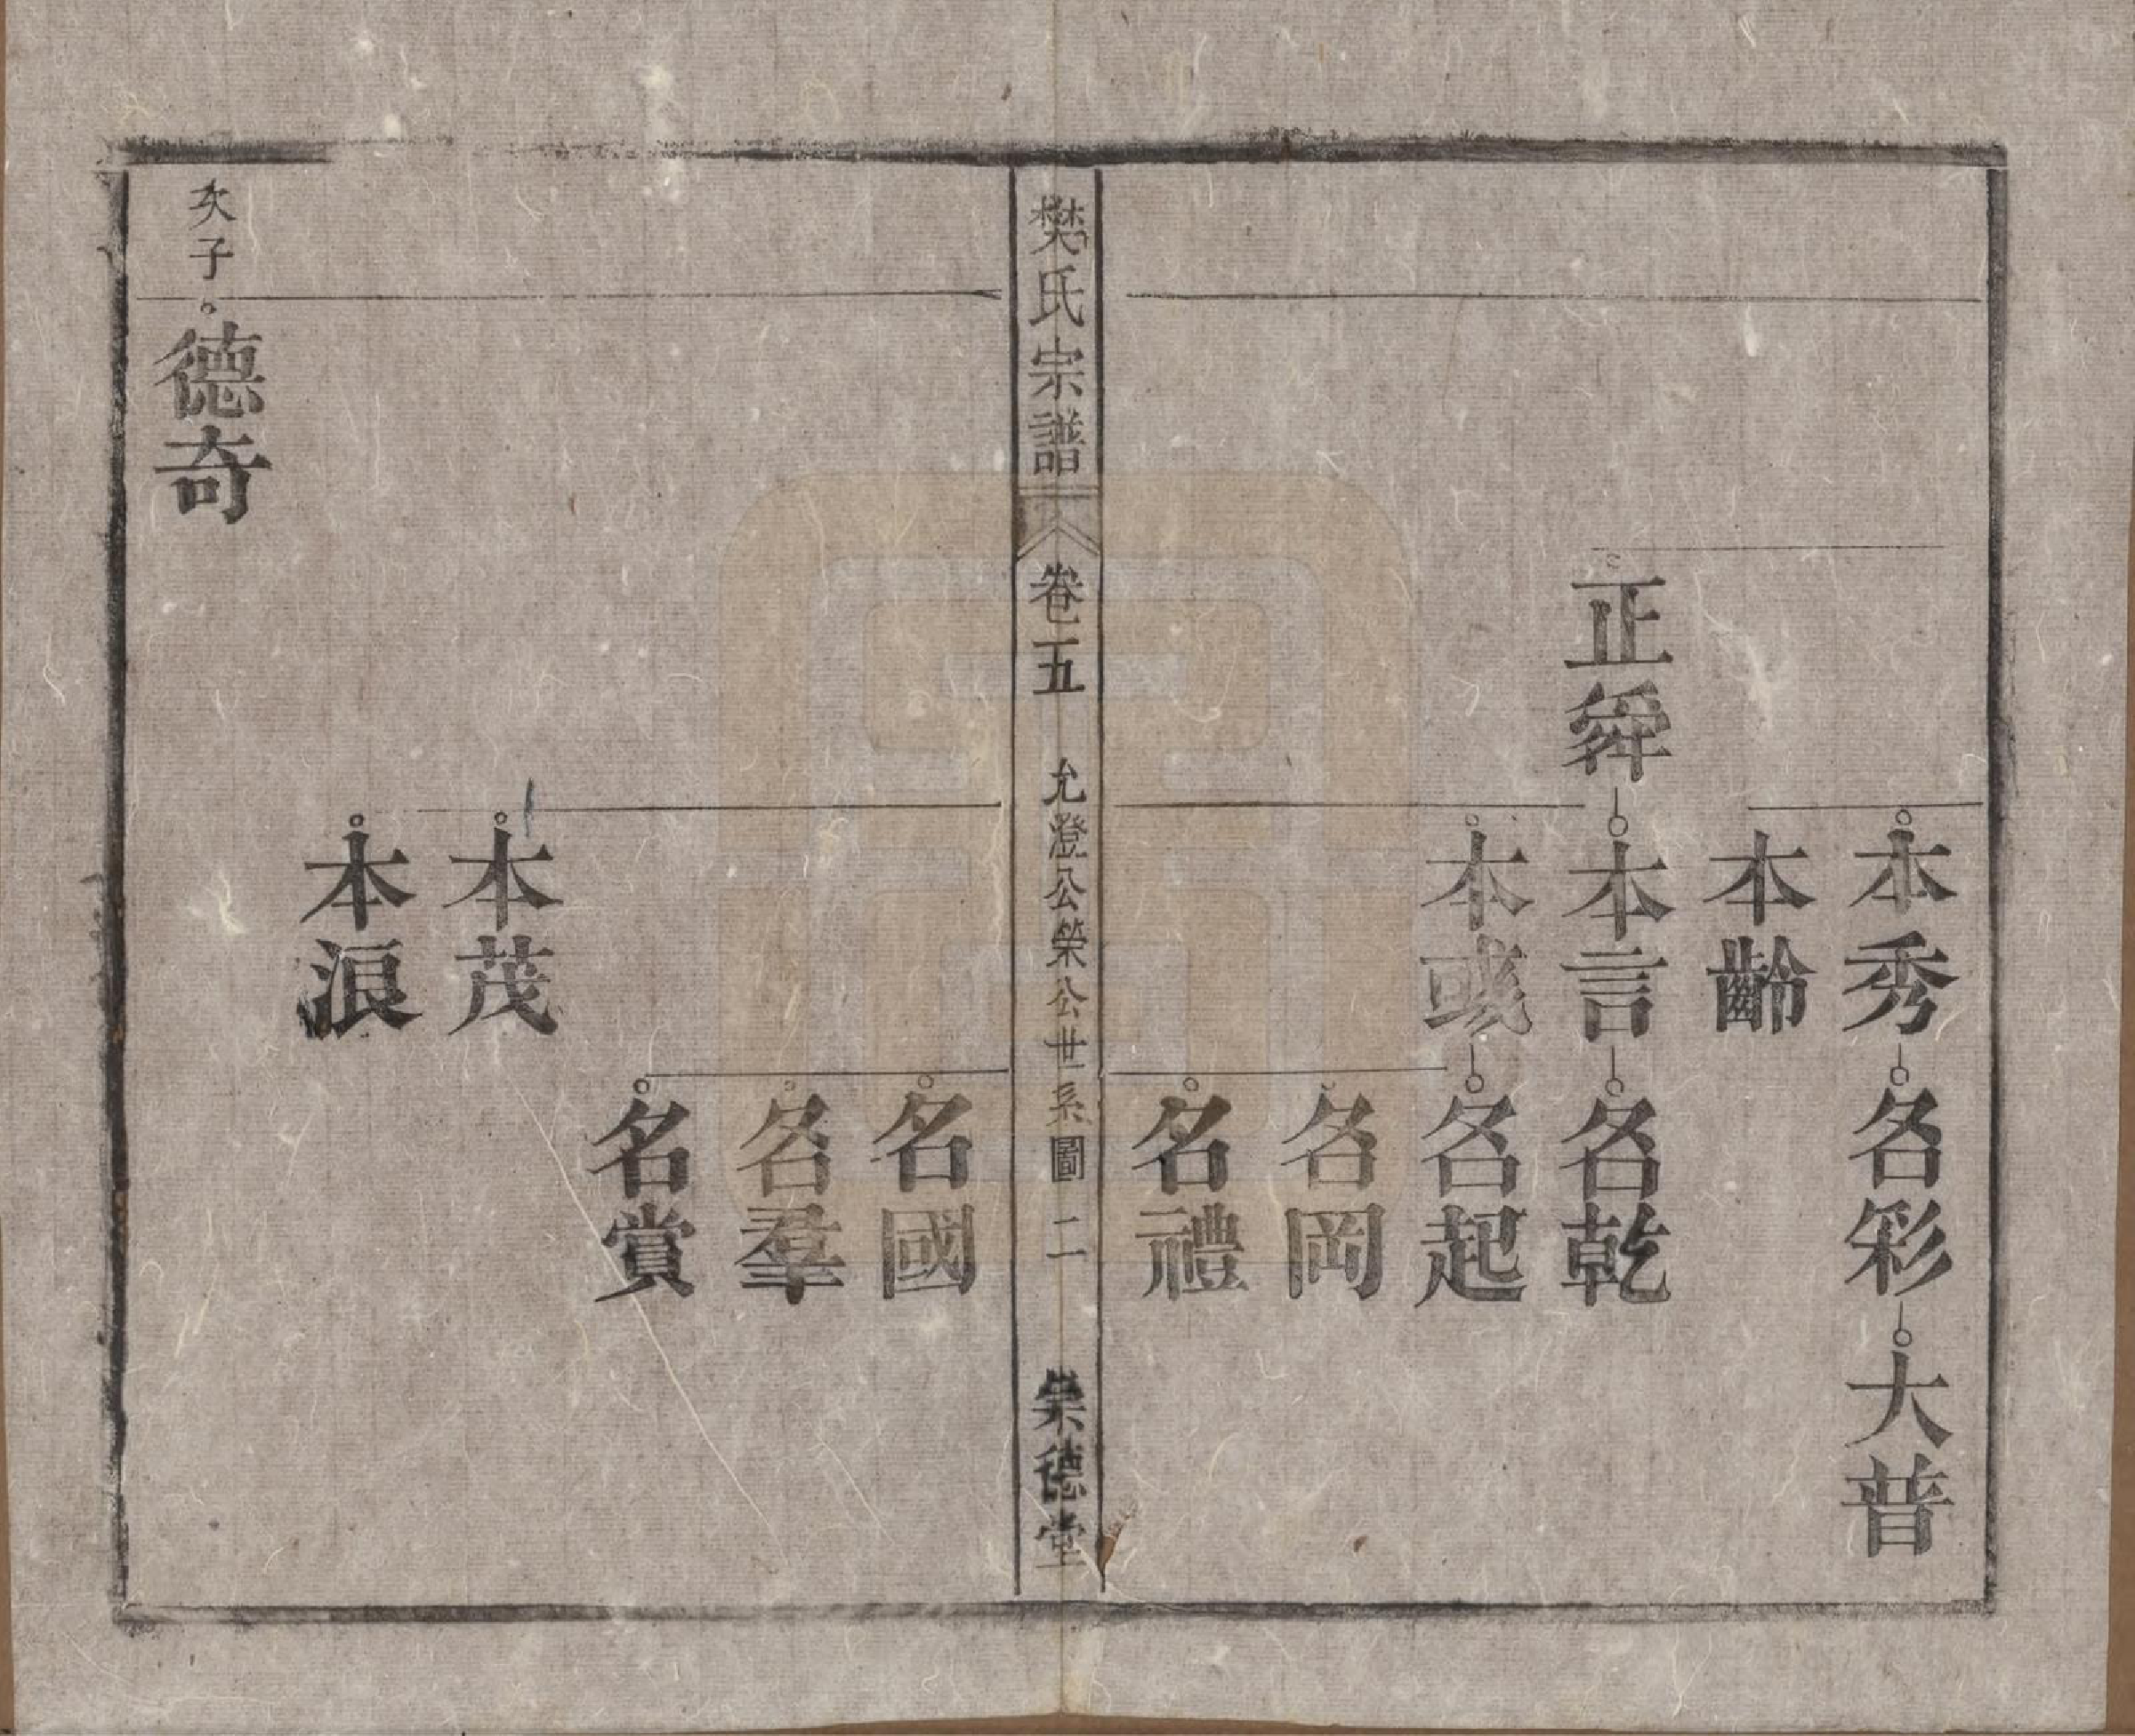 本秀 名彩 大普
本齡
正舜 本言 名乾
本彧 名起
名岡
名禮
樊氏宗譜 卷五 允澄公榮公世系圖 二 崇德堂
名國
名羣
名賞
本茂
本浪
次子 德奇